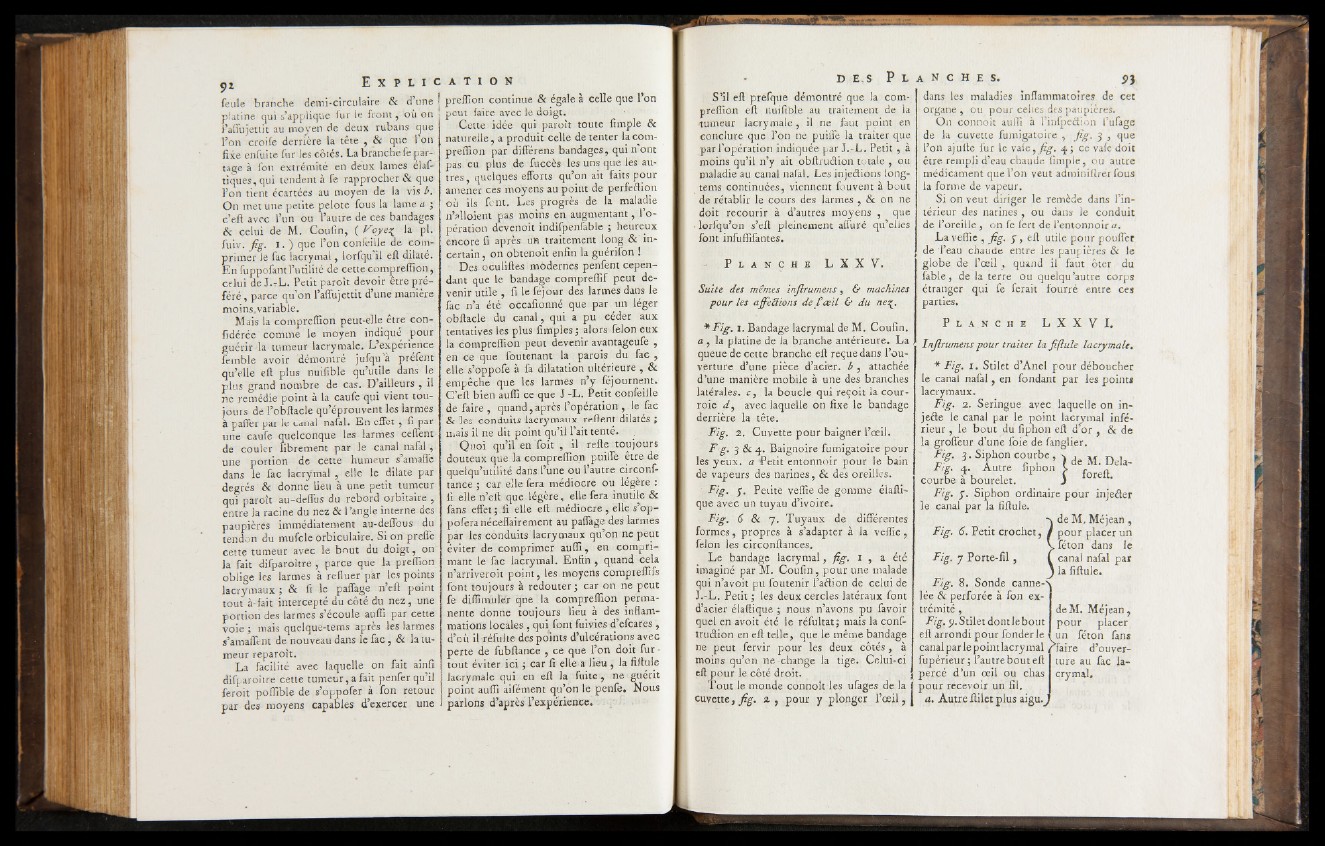 92 EXPLICATION
ſeule branche demi-circulaire & d'une
platine qui s'applique ſur le front, où on
l'aſſujettit au moyen de deux rubans que
l'on croiſe derrière la tête, & que l'on
fixe enſuite ſur les côtés. La branche ſe par-
tage à ſon extrémité en deux lames élaſ-
tiques, qui tendent à ſe rapprocher & que
l'on tient écartées au moyen de la vis b.
On met une petite pelote ſous la lame a ;
c'eſt avec l'un ou l'autre de ces bandages
& celui de M. Couſin, ( Voyez la pl.
ſuiv. fig. 1. ) que l'on conſeille de com-
primer le ſac lacrymal, lorſqu'il eſt dilaté.
En ſuppoſant l'utilité de cette compreſſion,
celui de J.-L. Petit paroît devoir être pré-
féré, parce qu'on l'aſſujettit d'une manière
moins variable.
Mais la compreſſion peut-elle être con-
ſidérée comme le moyen indiqué pour
guérir la tumeur lacrymale. L'expérience
ſemble avoir démontré juſqu'à préſent
qu'elle eſt plus nuiſible qu'utile dans le
plus grand nombre de cas. D'ailleurs, il
ne remédie point à la cauſe qui vient tou-
jours de l'obſtacle qu'éprouvent les larmes
à paſſer par le canal naſal. En effet, ſi par
une cauſe quelconque les larmes ceſſent
de couler librement par le canal naſal,
une portion de cette humeur s'amaſſe
dans le ſac lacrymal, elle le dilate par
degrés & donne lieu à une petit tumeur
qui paroît au-deſſus du rebord orbitaire,
entre la racine du nez & l'angle interne des
paupières immédiatement au-deſſous du
tendon du muſcle orbiculaire. Si on preſſe
cette tumeur avec le bout du doigt, on
la fait diſparoître, parce que la preſſion
oblige les larmes à refluer par les points
lacrymaux ; & ſi le paſſage n'eſt point
tout à-fait intercepté du côté du nez, une
portion des larmes s'écoule auſſi par cette
voie ; mais quelque-tems après les larmes
s'amaſſent de nouveau dans le ſac, & la tu-
meur reparoît.
La facilité avec laquelle on fait ainſi
diſparoître cette tumeur, a fait penſer qu'il
ſeroit poſſible de s'oppoſer à ſon retour
par des moyens capables d'exercer une
preſſion continue & égale à celle que l'on
peut faire avec le doigt.
Cette idée qui paroît toute ſimple &
naturelle, a produit celle de tenter la com-
preſſion par différens bandages, qui n'ont
pas eu plus de ſuccès les uns que les au-
tres, quelques efforts qu'on ait faits pour
amener ces moyens au point de perfection
où ils ſont. Les progrès de la maladie
n'alloient pas moins en augmentant, l'o-
pération devenoit indiſpenſable ; heureux
encore ſi après un traitement long & in-
certain, on obtenoit enfin la guériſon !
Des oculiſtes modernes penſent cepen-
dant que le bandage compreſſif peut de-
venir utile, ſi le ſéjour des larmes dans le
ſac n'a été occaſionné que par un léger
obſtacle du canal, qui a pu céder aux
tentatives les plus ſimples ; alors ſelon eux
la compreſſion peut devenir avantageuſe,
en ce que ſoutenant la parois du ſac,
elle s'oppoſe à ſa dilatation ultérieure, &
empêche que les larmes n'y ſéjournent.
C'eſt bien auſſi ce que J-L. Petit conſeille
de faire, quand, après l'opération, le ſac
& les conduits lacrymaux reſtent dilatés ;
mais il ne dit point qu'il l'ait tenté.
Quoi qu'il en ſoit, il reſte toujours
douteux que la compreſſion puiſſe être de
quelqu'utilité dans l'une ou l'autre circonſ-
tance ; car elle ſera médiocre ou légère :
ſi elle n'eſt que légère, elle ſera inutile &
ſans effet ; ſi elle eſt médiocre, elle s'op-
poſera néceſſairement au paſſage des larmes
par les conduits lacrymaux qu'on ne peut
éviter de comprimer auſſi, en compri-
mant le ſac lacrymal. Enfin, quand cela
n'arriveroit point, les moyens compreſſifs
ſont toujours à redouter ; car on ne peut
ſe diſſimuler que la compreſſion perma-
nente donne toujours lieu à des inflam-
mations locales, qui ſont ſuivies d'eſcares,
d'où il réſulte des points d'ulcérations avec
perte de ſubſtance, ce que l'on doit ſur-
tout éviter ici ; car ſi elle a lieu, la fiſtule
lacrymale qui en eſt la ſuite, ne guérit
point auſſi aiſément qu'on le penſe. Nous
parlons d'après l'expérience.
DES PLANCHES. 93
S'il eſt preſque démontré que la com-
preſſion eſt nuiſible au traitement de la
tumeur lacrymale, il ne faut point en
conclure que l'on ne puiſſe la traiter que
par l'opération indiquée par J.-L. Petit, à
moins qu'il n'y ait obſtruction totale, ou
maladie au canal naſal. Les injections long-
tems continuées, viennent ſouvent à bout
de rétablir le cours des larmes, & on ne
doit recourir à d'autres moyens, que
lorſqu'on s'eſt pleinement aſſuré qu'elles
ſont inſuffiſantes.
PLANCHE LXXV.
Suite des mêmes inſtrumens, & machines
pour les affections de l'œil & du nez.
* Fig. 1. Bandage lacrymal de M. Couſin.
a, la platine de la branche antérieure. La
queue de cette branche eſt reçue dans l'ou-
verture d'une pièce d'acier. b, attachée
d'une manière mobile à une des branches
latérales. c, la boucle qui reçoit la cour-
roie d, avec laquelle on fixe le bandage
derrière la tête.
Fig. 2. Cuvette pour baigner l'œil.
Fig. 3 & 4. Baignoire fumigatoire pour
les yeux. a Petit entonnoir pour le bain
de vapeurs des narines, & des oreilles.
Fig. 5. Petite veſſie de gomme élaſti-
que avec un tuyau d'ivoire.
Fig. 6 & 7. Tuyaux de différentes
formes, propres à s'adapter à la veſſie,
ſelon les circonſtances.
Le bandage lacrymal, fig. 1, a été
imaginé par M. Couſin, pour une malade
qui n'avoit pu ſoutenir l'action de celui de
J.-L. Petit ; les deux cercles latéraux ſont
d'acier élaſtique ; nous n'avons pu ſavoir
quel en avoit été le réſultat ; mais la conſ-
truction en eſt telle, que le même bandage
ne peut ſervir pour les deux côtés, à
moins qu'on ne change la tige. Celui-ci
eſt pour le côté droit.
Tout le monde connoît les uſages de la
cuvette, fig. 2, pour y plonger l'œil,
dans les maladies inflammatoires de cet
organe, ou pour celles des paupières.
On connoît auſſi à l'inſpection l'uſage
de la cuvette fumigatoire, fig. 3, que
l'on ajuſte ſur le vaſe, fig. 4 ; ce vaſe doit
être rempli d'eau chaude ſimple, ou autre
médicament que l'on veut adminiſtrer ſous
la forme de vapeur.
Si on veut diriger le remède dans l'in-
térieur des narines, ou dans le conduit
de l'oreille, on ſe ſert de l'entonnoir a.
La veſſie, fig. 5, eſt utile pour pouſſer
de l'eau chaude entre les paupières & le
globe de l'œil, quand il faut ôter du
ſable, de la terre ou quelqu'autre corps
étranger qui ſe ſeroit fourré entre ces
parties.
PLANCHE LXXVI.
Inſtrumens pour traiter la fiſtule lacrymale.
* Fig. 1. Stilet d'Anel pour déboucher
le canal naſal, en ſondant par les points
lacrymaux.
Fig. 2. Seringue avec laquelle on in-
jecte le canal par le point lacrymal infé-
rieur, le bout du ſiphon eſt d'or, & de
la groſſeur d'une ſoie de ſanglier.
Fig. 3. Siphon courbe,
Fig. 4. Autre ſiphon
courbe à bourelet.
de M. Dela-
foreſt.
Fig. 5. Siphon ordinaire pour injecter
le canal par la fiſtule.
Fig. 6. Petit crochet,
Fig. 7 Porte-fil,
de M. Méjean,
pour placer un
ſéton dans le
canal naſal par
la fiſtule.
Fig. 8. Sonde canne-
lée & perforée à ſon ex-
trémité,
Fig. 9. Stilet dont le bout
eſt arrondi pour ſonder le
canal par le point lacrymal
ſupérieur ; l'autre bout eſt
percé d'un œil ou chas
pour recevoir un fil.
a. Autre ſtilet plus aigu.
de M. Méjean,
pour placer
un ſéton ſans
faire d'ouver-
ture au ſac la-
crymal.